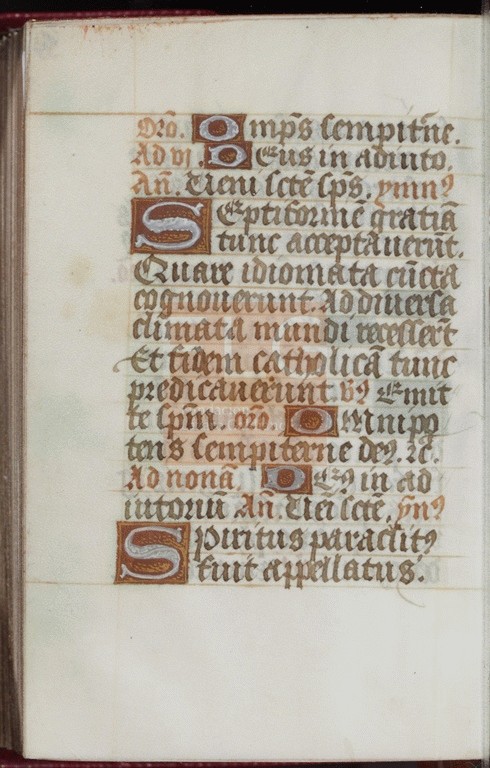 Oro̅. Omp̅s sempit̅ne.
Ad vj. Deus in adiuto.
An̅. Veni sct̅e sp̅s. ymnꝰ
Septiforme̅ gratia̅
tunc acceptauerūt.
Quare idiomata cu̅cta
cognouerunt. Ad diuersa
climata mundi recesser̅t
Et fidem catholica̅ tunc
predicauerunt. v̾ꝰ Emit
te sp̅m. oro̅. Omnipo
tens sempiterne deꝰ. ⁊c̅.
Ad nona̅. Deꝰ in ad
iutoriu̅ An̅. Vei̅ sct̅e. y̅nꝰ
Spiritus paraclitꝰ
fuit appellatus.